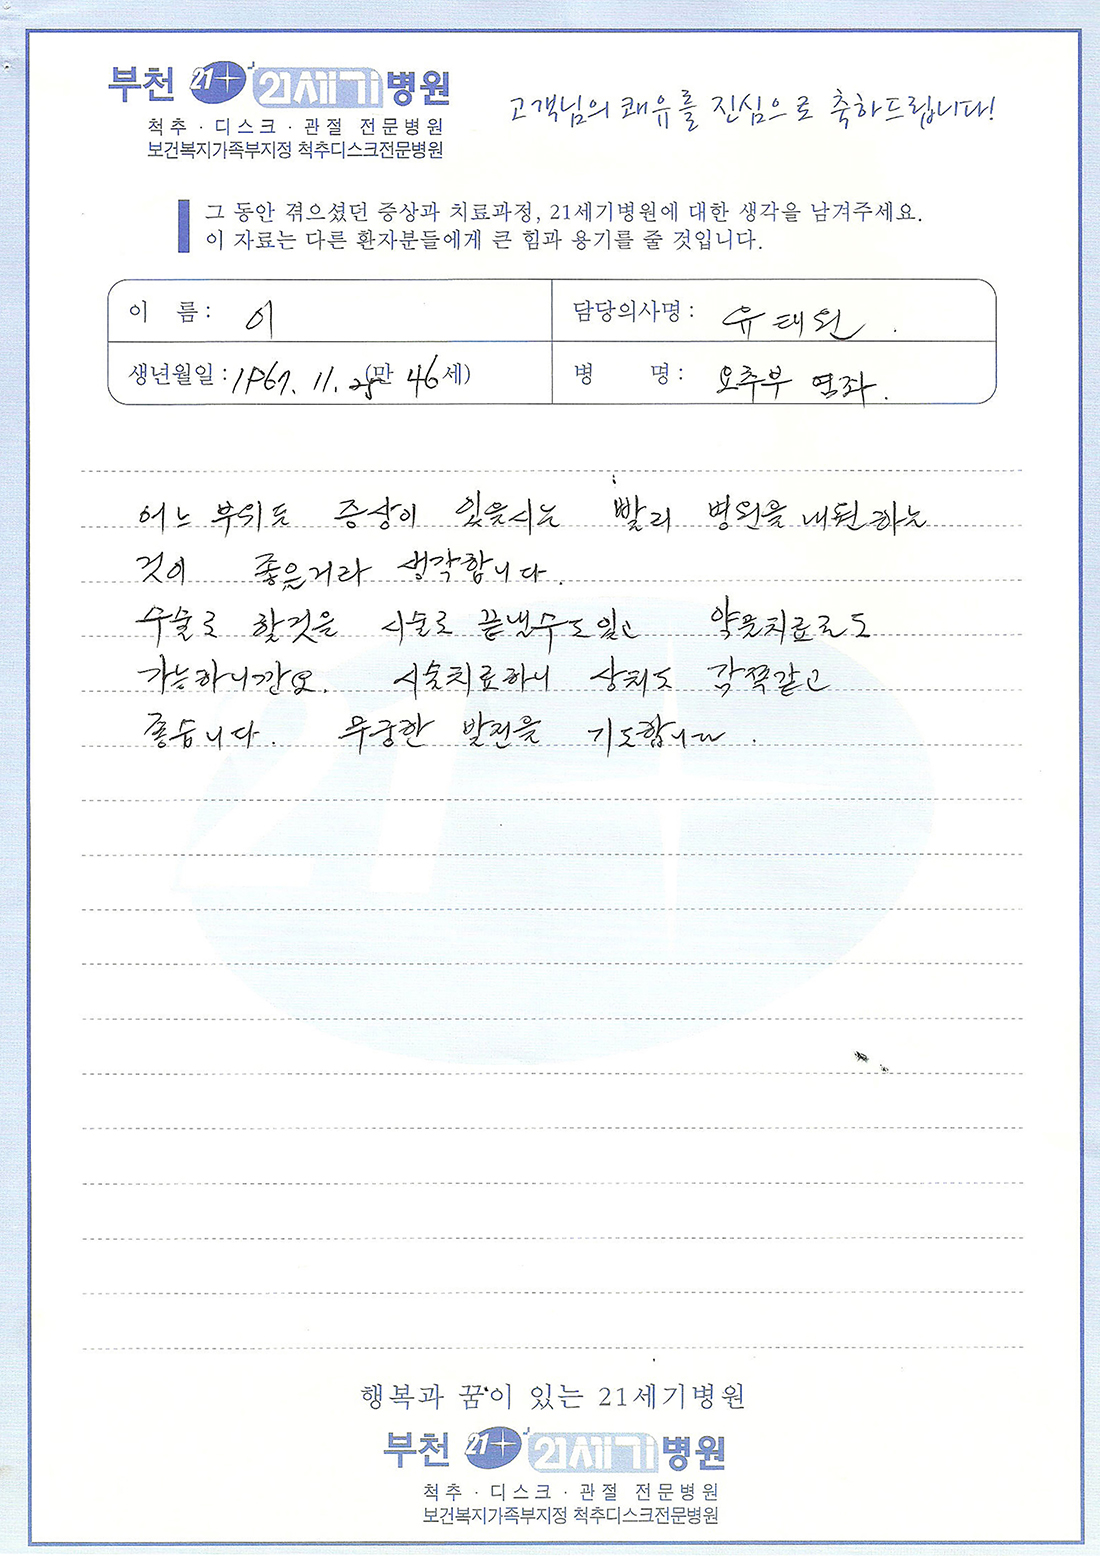 부천 21 21세기병원
척추 · 디스크 · 관절 전문병원
보건복지가족부지정 척추디스크전문병원
고객님의 쾌유를 진심으로 축하드립니다!
그 동안 겪으셨던 증상과 치료과정, 21세기병원에 대한 생각을 남겨주세요.
이 자료는 다른 환자분들에게 큰 힘과 용기를 줄 것입니다.
이 름 : 이
담당의사명 : 유태원 .
생년월일 : 1967. 11. 25 (만 46세)
병 명 : 요추부 염좌.
어느 부위도 증상이 있을시는 빨리 병원을 내원하는
것이 좋은거라 생각합니다.
수술로 할것을 시술로 끝낼수도있고 약물치료로도
가능하니깐요. 시술치료하니 상처도 감쪽같고
좋습니다. 무궁한 발전을 기도합니다.
행복과 꿈이 있는 21세기병원
부천 21 21세기병원
척추 · 디스크 · 관절 전문병원
보건복지가족부지정 척추디스크전문병원
21